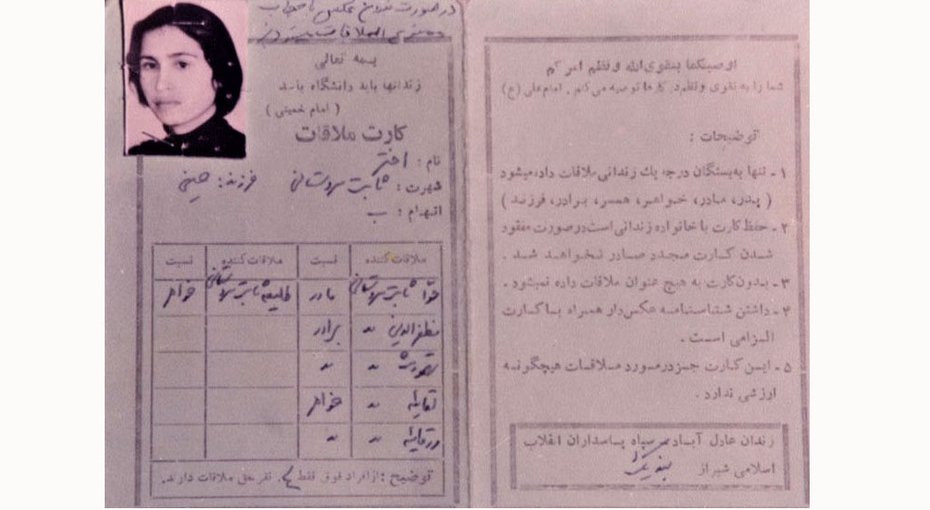 در صورت نبودن عکس با حجاب
ممنوع الملاقات میشوند
بسمه تعالی
زندانها باید دانشگاه باشد
( امام خمینی )
کارت ملاقات
نام : اختر
شهرت : ثابت سروستانی فرزند : حسین
اتهام : ب
ملاقات کننده نسبت ملاقات کننده نسبت
حوا ثابت سروستانی مادر طلیعه ثابت سروستانی خواهر
مظفرالدین " برادر
" "
" خواهر
ورقائیه " "
توضیح : از افراد فوق فقط نفر حق ملاقات دارند .
اوصیکما بتقوی الله و نظم امرکم
شما را به تقوی و نظم در کارها توصیه می کنم . امام علی (ع)
توضیحات :
۱ - تنها به بستگان درجه یک زندانی ملاقات داده میشود
( پدر، مادر، خواهر، همسر، برادر، فرزند )
۲ - حفظ کارت با خانواده زندانی است در صورت مفقود
شدن کارت مجدد صادر نخواهد شد .
۳ - بدون کارت به هیچ عنوان ملاقات داده نمیشود .
۴ - داشتن شناسنامه عکس دار همراه با کارت
الزامی است .
۵ - این کارت جز در مورد ملاقات هیچگونه
ارزشی ندارد .
زندان عادل آباد سپاه پاسداران انقلاب
اسلامی شیراز بند یک